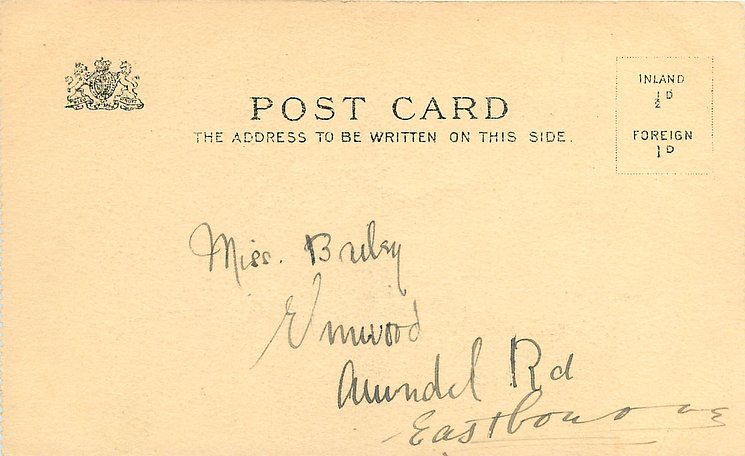 POST CARD
THE ADDRESS TO BE WRITTEN ON THIS SIDE.
INLAND
½ D
FOREIGN
1 D
Miss.
Arundel Rd
Eastbourne